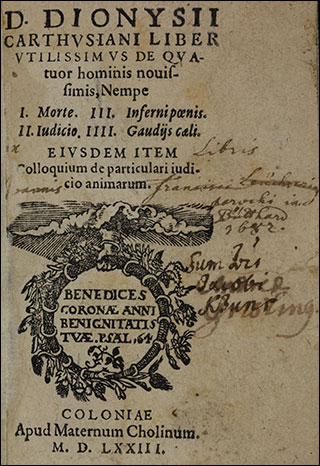 D. DIONYSII
CARTHVSIANI LIBER
VTILISSIMVS DE QVA-
tuor hominis nouis-
simis, Nempe
I. Morte. III. Inferni pœnis.
II. Iudicio. IIII. Gaudijs cæli.
EIVSDEM ITEM
Colloquium de particulari iudi-
cio animarum.
Libris
francisci
parochi in
1682.
Sum
BENEDICES
CORONÆ ANNI
BENIGNITATIS
TVÆ. PSAL. 64
COLONIAE
Apud Maternum Cholinum.
M. D. LXXIII.